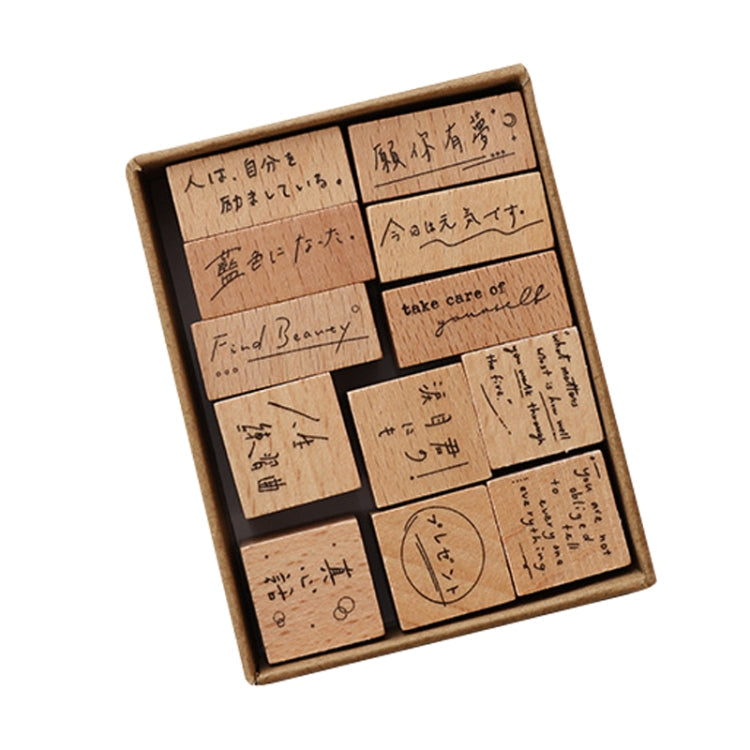 人は、自分を
励ましている。
願你有夢
藍色になった。
今日は元気です。
Find Beauey
take care of
yourself
人生
練習曲
"what matters
what is how well
you walk through
the fire."
真心話
プレゼント
you are not
obliged tell
to everyone
everything